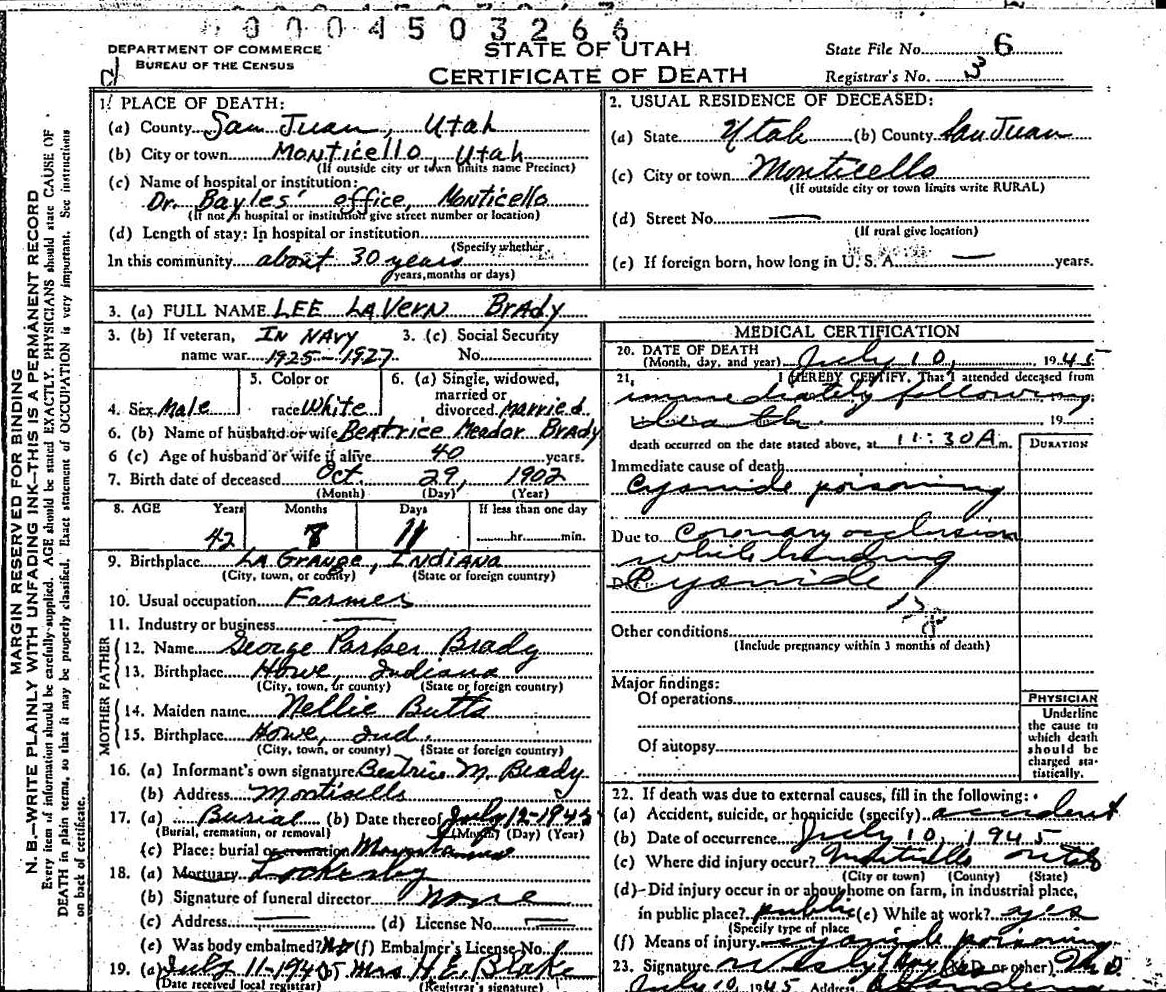 0 0 0 4 5 0 3 2 6 6
DEPARTMENT OF COMMERCE
BUREAU OF THE CENSUS
STATE OF UTAH
CERTIFICATE OF DEATH
State File No. 6
Registrar's No. 3
MARGIN RESERVED FOR BINDING
N. B.—WRITE PLAINLY WITH UNFADING INK—THIS IS A PERMANENT RECORD
Every item of information should be carefully supplied. AGE should be stated EXACTLY. PHYSICIANS should state CAUSE OF
DEATH in plain terms, so that it may be properly classified. Exact statement of OCCUPATION is very important. See instructions
on back of certificate.
1. PLACE OF DEATH:
(a) County San Juan, Utah
(b) City or town Monticello, Utah
(If outside city or town limits name Precinct)
(c) Name of hospital or institution:
Dr. Bayles' office, Monticello
(If not in hospital or institution give street number or location)
(d) Length of stay: In hospital or institution
(Specify whether
In this community about 30 years
years, months or days)
2. USUAL RESIDENCE OF DECEASED:
(a) State Utah (b) County San Juan
(c) City or town Monticello
(If outside city or town limits write RURAL)
(d) Street No. —
(If rural give location)
(e) If foreign born, how long in U. S. A. — years.
3. (a) FULL NAME LEE LaVern Brady
3. (b) If veteran, IN NAVY 3. (c) Social Security
name war 1925-1927 No.
4. Sex Male
5. Color or
race White
6. (a) Single, widowed,
married or
divorced married
6. (b) Name of husband or wife Beatrice Meador Brady
6 (c) Age of husband or wife if alive 40 years.
7. Birth date of deceased Oct. 29, 1902
(Month) (Day) (Year)
8. AGE Years Months Days If less than one day
42 8 11 hr. min.
9. Birthplace La Grange, Indiana
(City, town, or county) (State or foreign country)
10. Usual occupation Farmer
11. Industry or business —
FATHER
12. Name George Parker Brady
13. Birthplace Howe, Indiana
(City, town, or county) (State or foreign country)
MOTHER
14. Maiden name Nellie Butts
15. Birthplace Howe, Ind.
(City, town, or county) (State or foreign country)
16. (a) Informant's own signature Beatrice M. Brady
(b) Address Monticello
17. (a) Burial (b) Date thereof July 12-1945
(Burial, cremation, or removal) (Month) (Day) (Year)
(c) Place: burial or cremation
18. (a) Mortuary
(b) Signature of funeral director none
(c) Address — (d) License No. —
(e) Was body embalmed? No (f) Embalmer's License No.
19. (a) July 11-1945 Mrs H. E. Blake
(Date received local registrar) (Registrar's signature)
MEDICAL CERTIFICATION
20. DATE OF DEATH
(Month, day, and year) July 10, 1945
21. I HEREBY CERTIFY, That I attended deceased from
immediately following
death 19
death occurred on the date stated above, at 11:30 A m.
DURATION
Immediate cause of death
Cyanide poisoning
Due to coronary occlusion
while handling
Cyanide
Other conditions
(Include pregnancy within 3 months of death)
Major findings:
Of operations
Of autopsy
PHYSICIAN
Underline
the cause to
which death
should be
charged sta-
tistically.
22. If death was due to external causes, fill in the following:
(a) Accident, suicide, or homicide (specify) accident
(b) Date of occurrence July 10, 1945
(c) Where did injury occur? Monticello Utah
(City or town) (County) (State)
(d) Did injury occur in or about home on farm, in industrial place,
in public place? public (e) While at work? yes
(Specify type of place
(f) Means of injury cyanide poisoning
23. Signature (M.D. or other) M.D.
July 10, 1945 Address